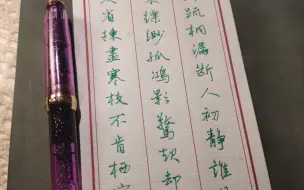 疏桐漏断人初静誰
縹緲孤鴻影驚起却
省揀盡寒枝不肯栖